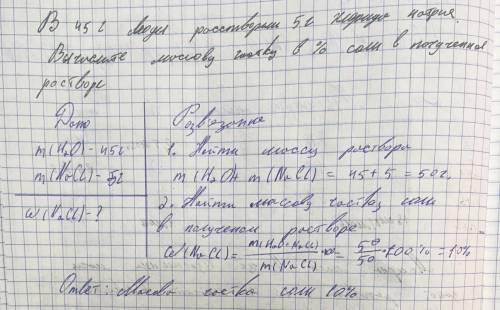 В 45 г воды росстворили 5 г хлорида натрия.
Вычислите мосову частку в % соли в полученом
растворе
Дано
m(H₂O) - 45г
m(NaCl) - 5г
ω(NaCl) - ?
Розв'язання
1. Найти массу раствора
m(H₂O)+ m(NaCl) = 45 + 5 = 50г.
2. Найти массову частку соли
в полученом растворе
ω(NaCl) = m(H₂O+NaCl) / m(NaCl) = 5 / 50 · 100% = 10%
Ответ: Масова частка соли 10%